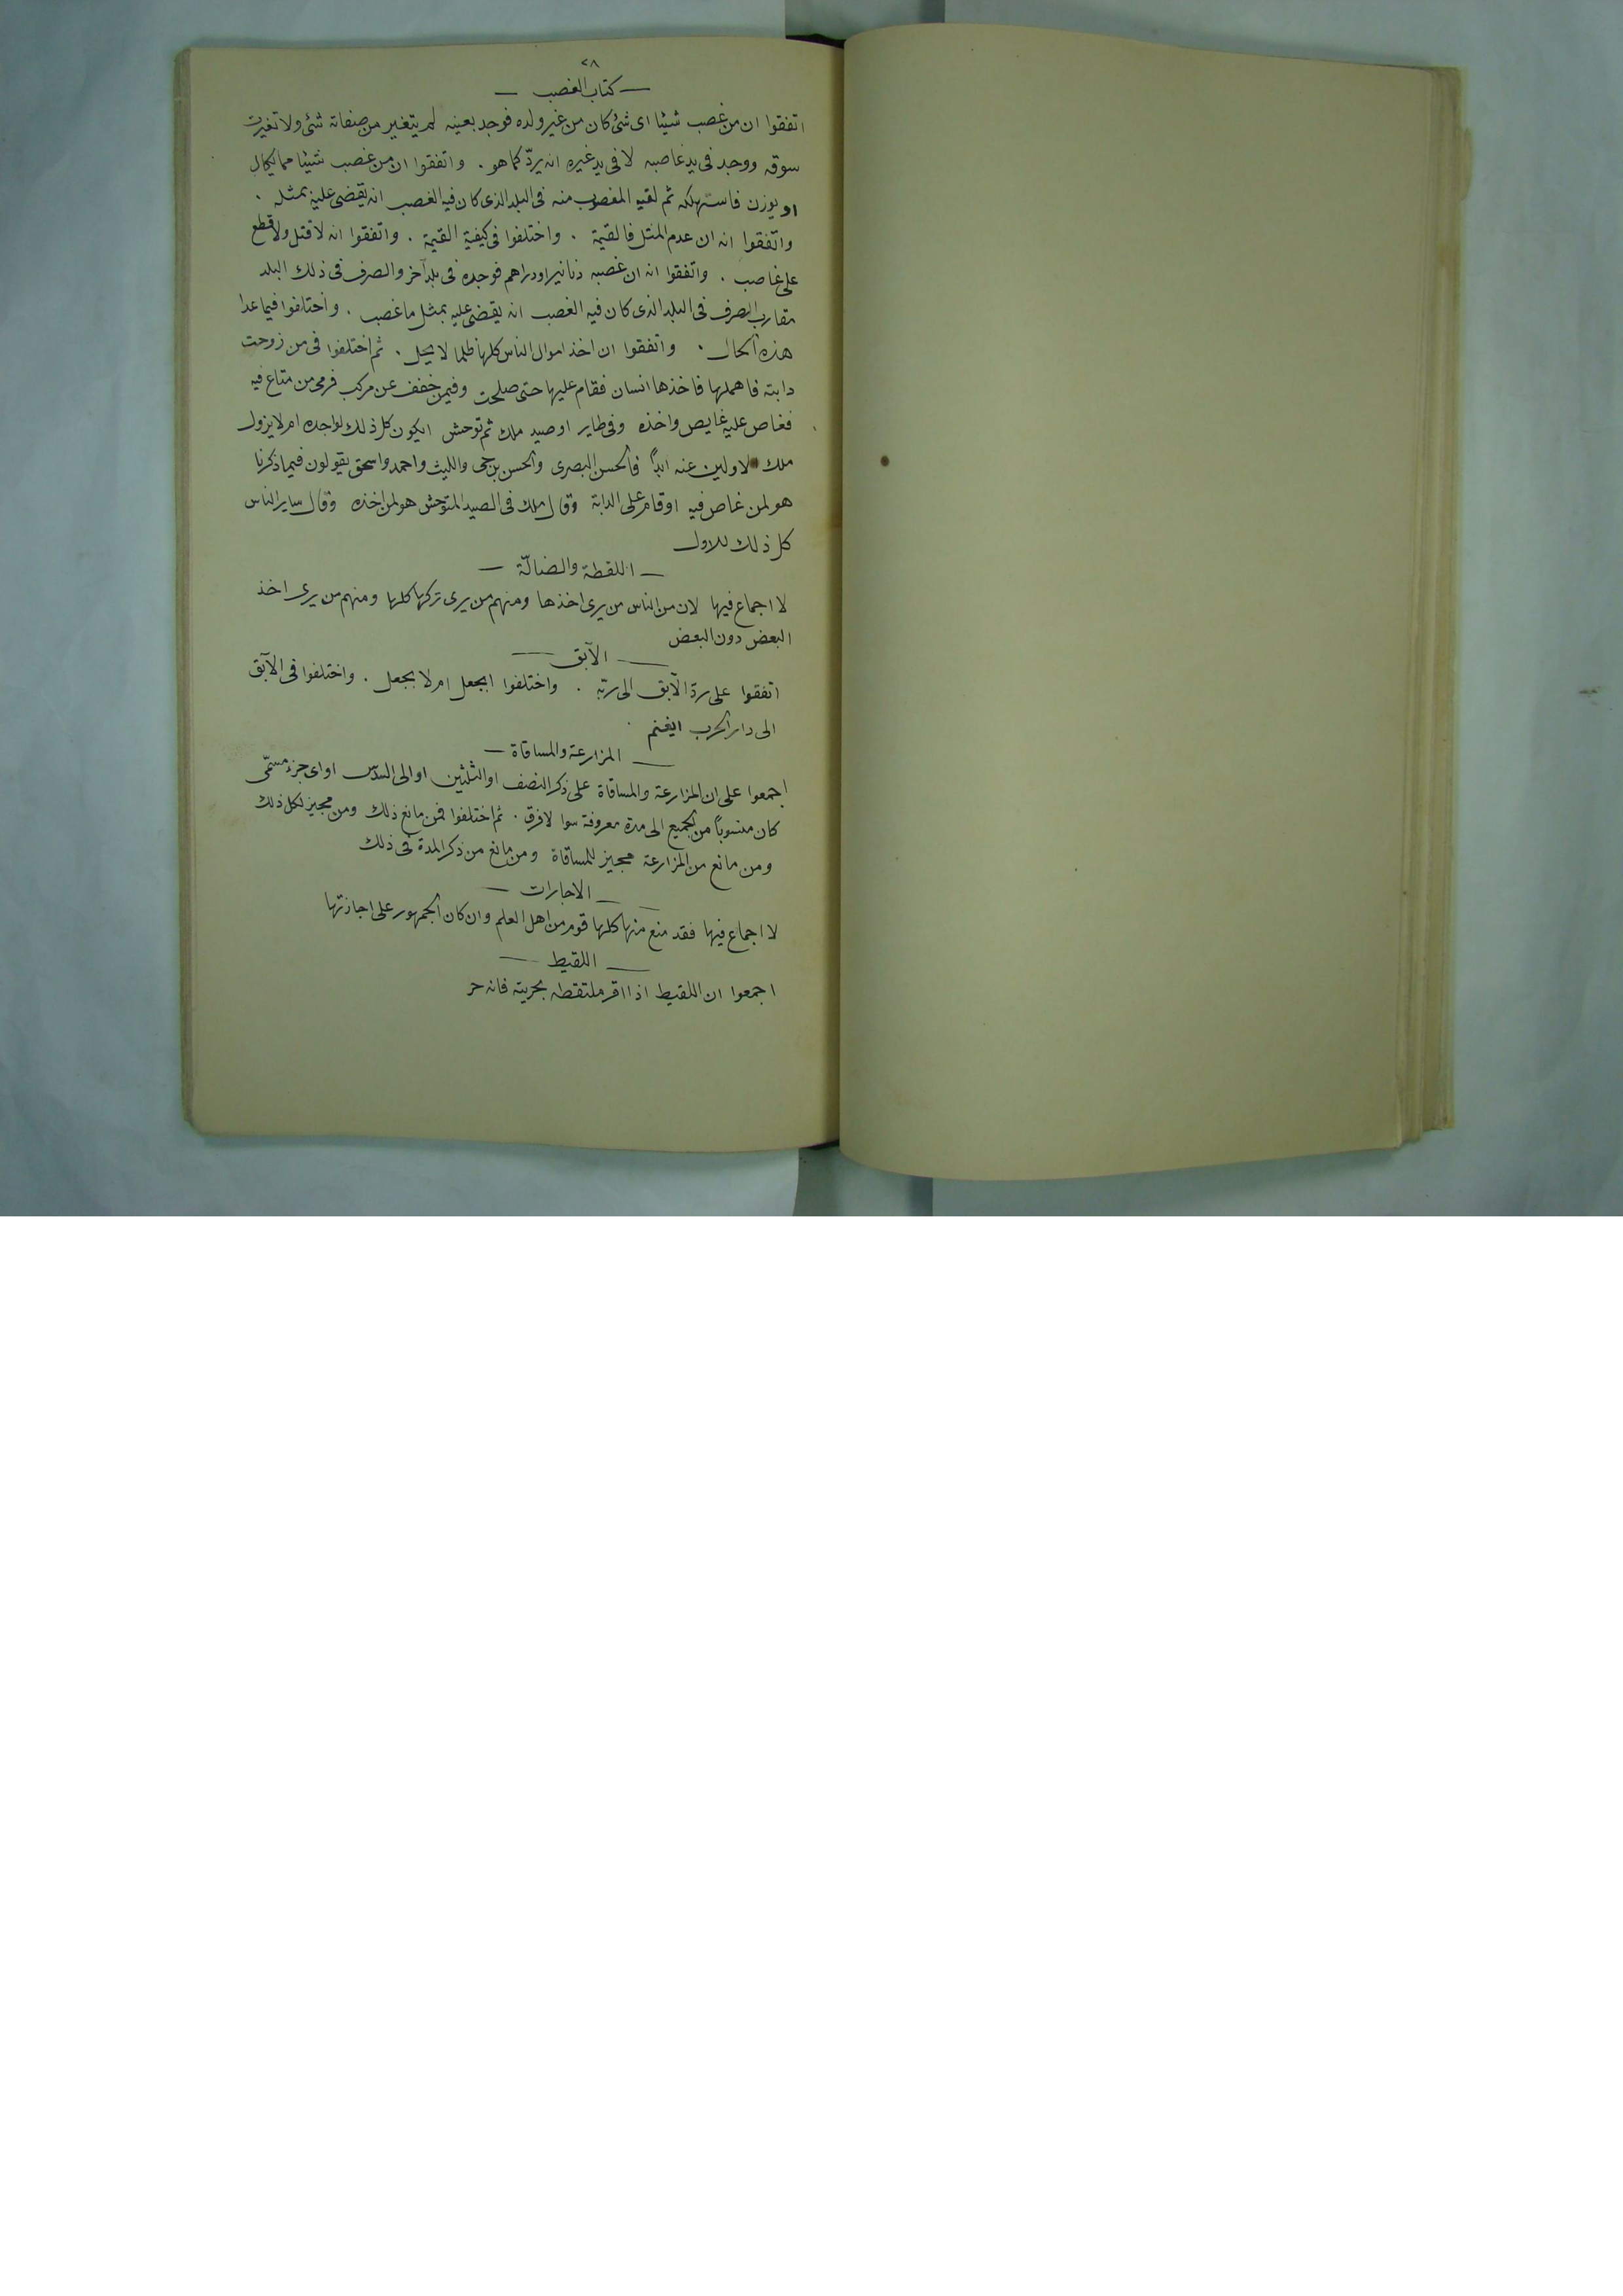 ٢٨
— كتاب الغصب —
اتفقوا ان من غصب شيئا اى شئ كان من غير ولده فوجد بعينه لم يتغير من صفاته شئ ولا تغيرت
سوقه ووجد فى يد غاصبه لا فى يد غيره انه يردّ كما هو . واتفقوا ان من غصب شيئا مما يكال
او يوزن فاستهلكه ثم لقيه المغصوب منه فى البلد الذى كان فيه الغصب انه يقضى عليه بمثله .
واتفقوا انه ان عدم المثل فالقيمة . واختلفوا فى كيفية القيمة . واتفقوا انه لا قتل ولا قطع
على غاصب . واتفقوا انه ان غصبه دنانير او دراهم فوجده فى بلد آخر والصرف فى ذلك البلد
مقارب الصرف فى البلد الذى كان فيه الغصب انه يقضى عليه بمثل ما غصب . واختلفوا فيما عدا
هذه الحال . واتفقوا ان اخذ اموال الناس كلها ظلما لا يحل . ثم اختلفوا فى من زوحت
دابته فاهملها فاخذها انسان فقام عليها حتى صلحت وفيمن خفف عن مركب فرمى من متاع فيه
فغاص عليه غايص واخذه وفى طاير او صيد ملك ثم توحش ايكون كل ذلك لواجده ام لا يزول
ملك الاولين عنه ابداً فالحسن البصرى والحسن بن حى والليث واحمد واسحق يقولون فيما ذكرنا
هو لمن غاص فيه او قام على الدابة وقال ملك فى الصيد المتوحش هو لمن اخذه وقال ساير الناس
كل ذلك للاول
— اللقطة والضالّة —
لا اجماع فيها لان من الناس من يرى اخذها ومنهم من يرى تركها كلها ومنهم من يرى اخذ
البعض دون البعض
— الآبق —
اتفقوا على ردّ الآبق الى ربّه . واختلفوا ابجعل ام لا بجعل . واختلفوا فى الآبق
الى دار الحرب ايغنم .
— المزارعة والمساقاة —
اجمعوا على ان المزارعة والمساقاة على ذكر النصف او الثلثين او الى السدس او اى جزء مسمّى
كان منسوباً من الجميع الى مدة معروفة سوا لا فرق . ثم اختلفوا فمن مانع ذلك ومن مجيز لكل ذلك
ومن مانع من المزارعة مجيز للمساقاة ومن مانع من ذكر المدة فى ذلك
— الاجارات —
لا اجماع فيها فقد منع منها كلها قوم من اهل العلم وان كان الجمهور على اجازتها
— اللقيط —
اجمعوا ان اللقيط اذا اقر ملتقطه بحريته فانه حر